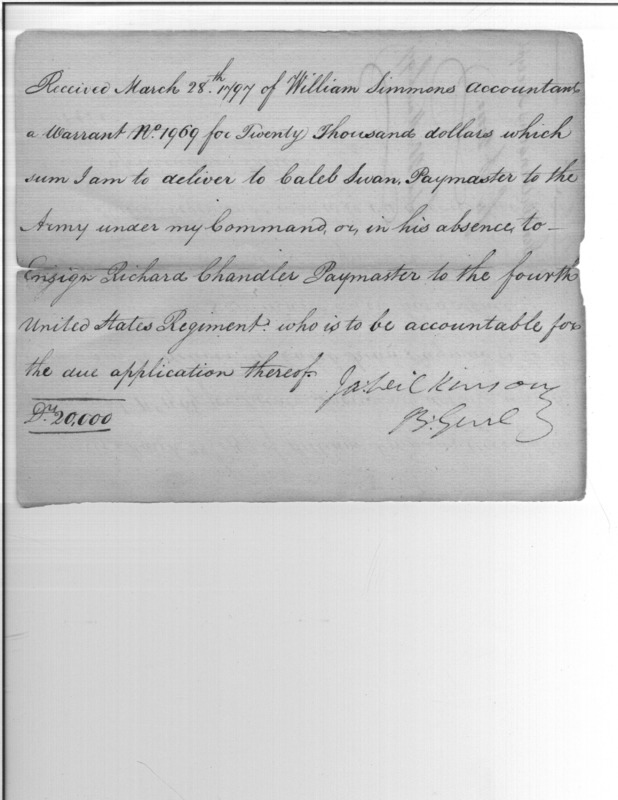 Received March 28.th 1797 of William Simmons Accountant
a Warrant No. 1969 for Twenty Thousand dollars which
sum I am to deliver to Caleb Swan, Paymaster to the
Army under my Command, or, in his absence, to
Ensign Richard Chandler Paymaster to the fourth
United States Regiment. who is to be accountable for
the due application thereof.
Ja Wilkinson
Drs. 20,000
B. Genl